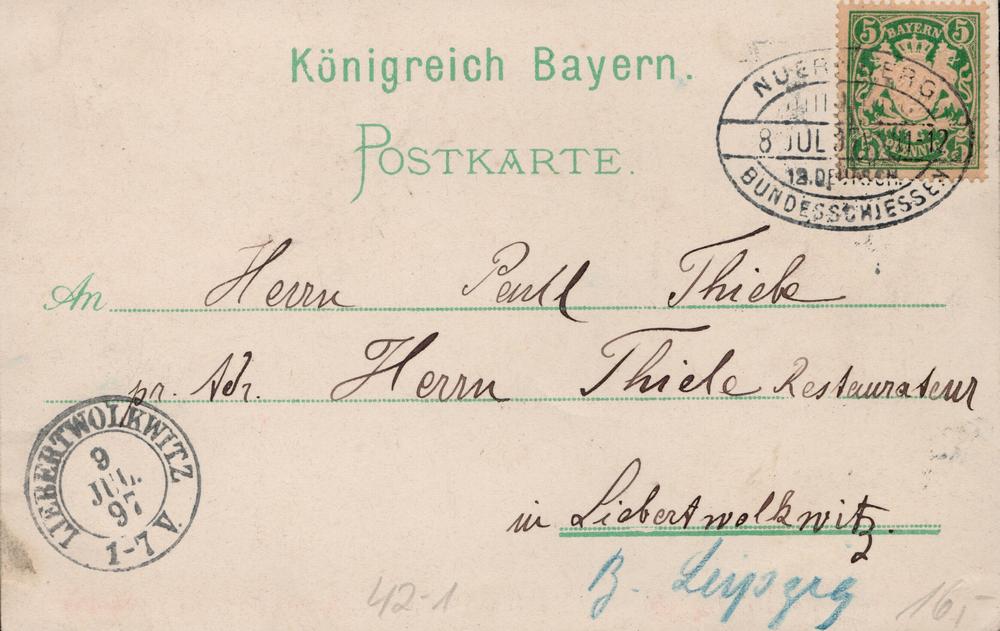 Königreich Bayern.
POSTKARTE.
5 BAYERN 5
5 PFENNIG 5
NUERNBERG
8 JUL 97 11-12
12. DEUTSCH.
BUNDESSCHIESSEN
An Herrn Paul Thiele
pr. Adr. Herrn Thiele Restaurateur
in Liebertwolkwitz.
B. Leipzig
LIEBERTWOLKWITZ
9
JUL.
97
1-7 V.
42-1
16,-